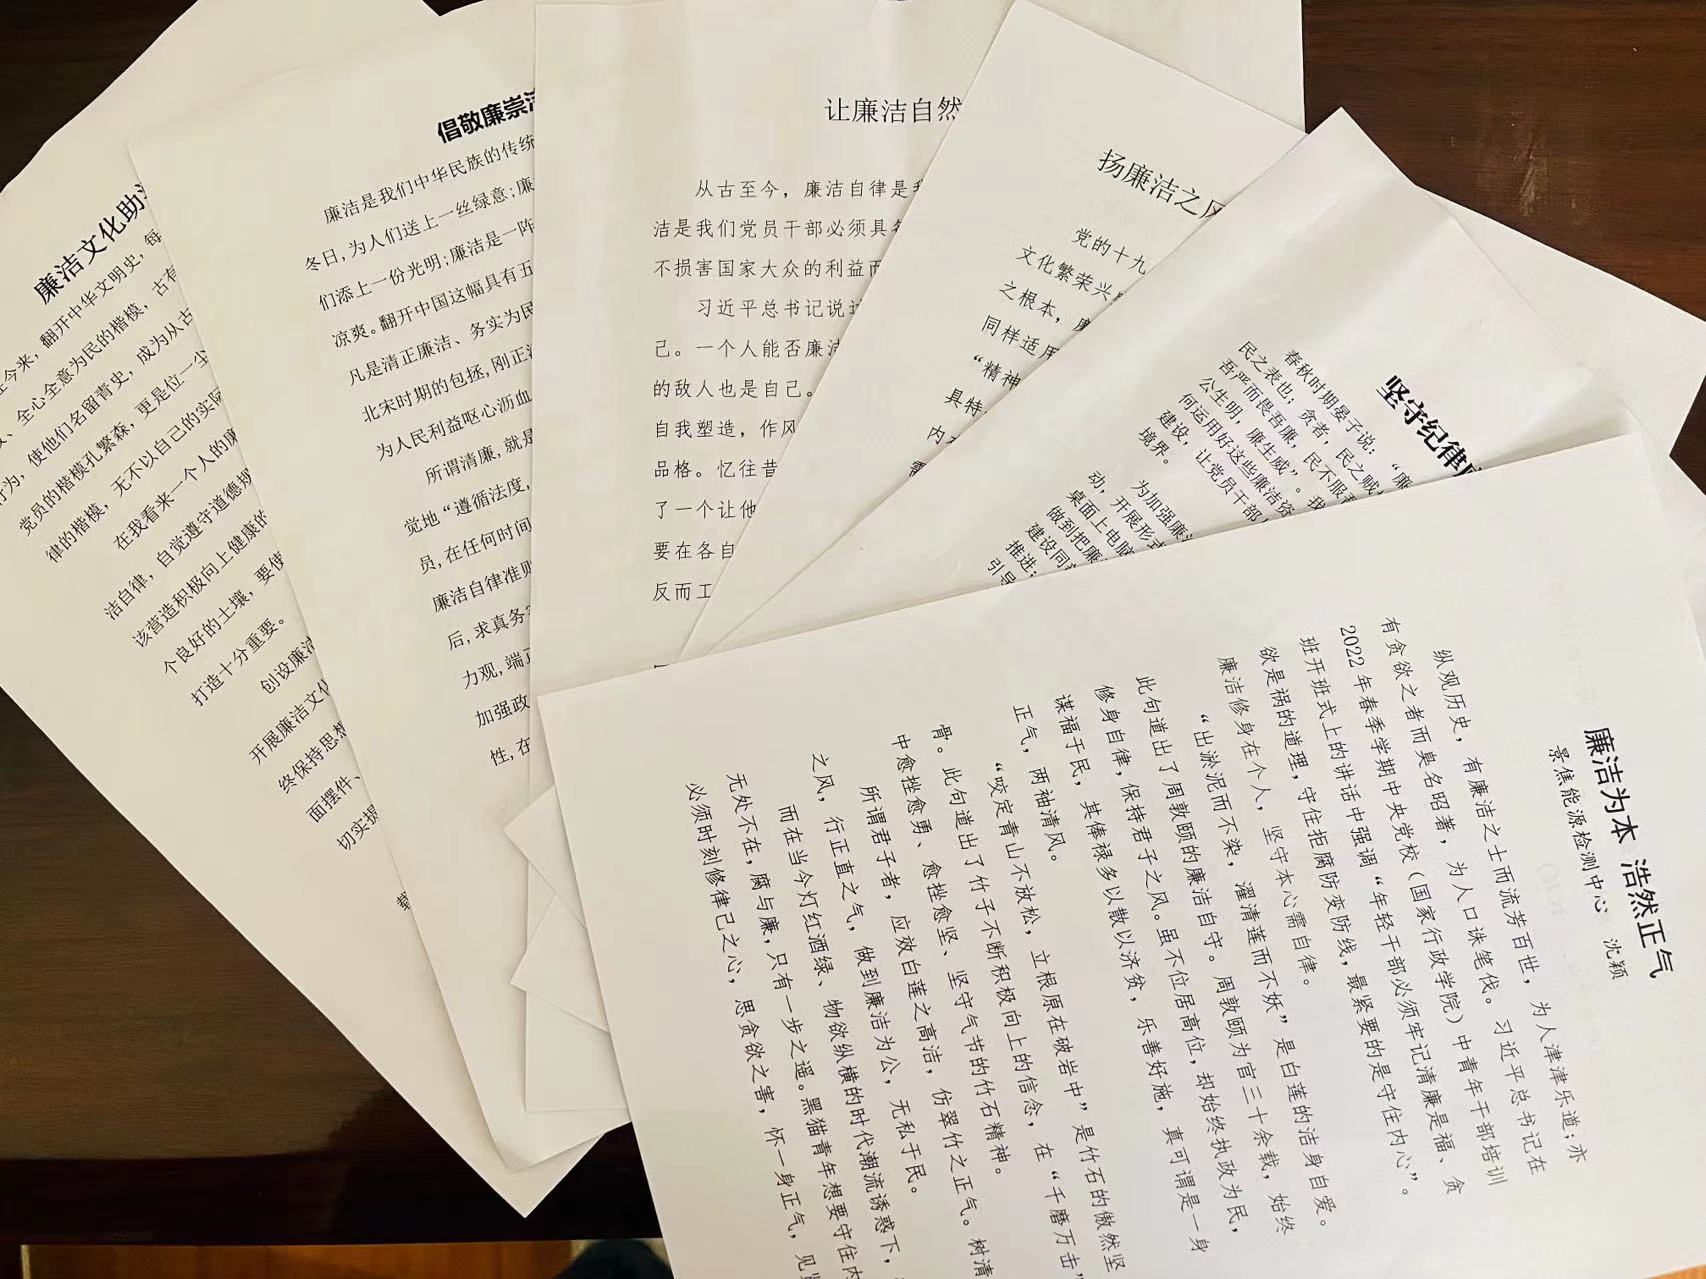 廉洁文化助
今来，翻开中华文明史，每
、全心全意为民的楷模，古有
行为，使他们名留青史，成为从古
党员的楷模孔繁森，更是位一尘
律的楷模，无不以自己的实际
在我看来一个人的廉
洁自律，自觉遵守道德规
该营造积极向上健康的
个良好的土壤，要使
打造十分重要。
创设廉洁
开展廉洁文化
终保持思想
面摆件、
切实提
倡敬廉崇洁
廉洁是我们中华民族的传统
冬日,为人们送上一丝绿意;廉
们添上一份光明;廉洁是一阵
凉爽。翻开中国这幅具有五
凡是清正廉洁、务实为民
北宋时期的包拯,刚正
为人民利益呕心沥血
所谓清廉,就是
觉地“遵循法度,
员,在任何时间
廉洁自律准则
后,求真务
力观,端正
加强政
性,在
让廉洁自然
从古至今，廉洁自律是我
洁是我们党员干部必须具备
不损害国家大众的利益而
习近平总书记说过
己。一个人能否廉洁
的敌人也是自己。
自我塑造，作风
品格。忆往昔
了一个让他
要在各自
反而工
扬廉洁之风
党的十九
文化繁荣兴
之根本，廉
同样适用
“精神
具特
内
坚守纪律
春秋时期晏子说：“廉
民之表也；贪者，民之贼
吾严而畏吾廉，民不服
公生明，廉生威”。我
何运用好这些廉洁资
建设，让党员干部
境界。
为加强廉
动，开展形式
桌面上电脑
做到把廉
建设同
推进；
引导
廉洁为本 浩然正气
景焦能源检测中心 沈颖
纵观历史，有廉洁之士而流芳百世，为人津津乐道；亦
有贪欲之者而臭名昭著，为人口诛笔伐。习近平总书记在
2022年春季学期中央党校（国家行政学院）中青年干部培训
班开班式上的讲话中强调“年轻干部必须牢记清廉是福、贪
欲是祸的道理，守住拒腐防变防线，最紧要的是守住内心”。
廉洁修身在个人，坚守本心需自律。
“出淤泥而不染，濯清莲而不妖”是白莲的洁身自爱。
此句道出了周敦颐的廉洁自守。周敦颐为官三十余载，始终
修身自律，保持君子之风。虽不位居高位，却始终执政为民，
谋福于民，其俸禄多以散以济贫，乐善好施，真可谓是一身
正气，两袖清风。
“咬定青山不放松，立根原在破岩中”是竹石的傲然坚
骨。此句道出了竹子不断积极向上的信念，在“千磨万击”
中愈挫愈勇、愈挫愈坚、坚守气节的竹石精神。
所谓君子者，应效白莲之高洁，仿翠竹之正气。树清
之风，行正直之气，做到廉洁为公，无私于民。
而在当今灯红酒绿、物欲纵横的时代潮流诱惑下，
无处不在，腐与廉，只有一步之遥。黑猫青年想要守住内
必须时刻修律己之心，思贪欲之害，怀一身正气，见